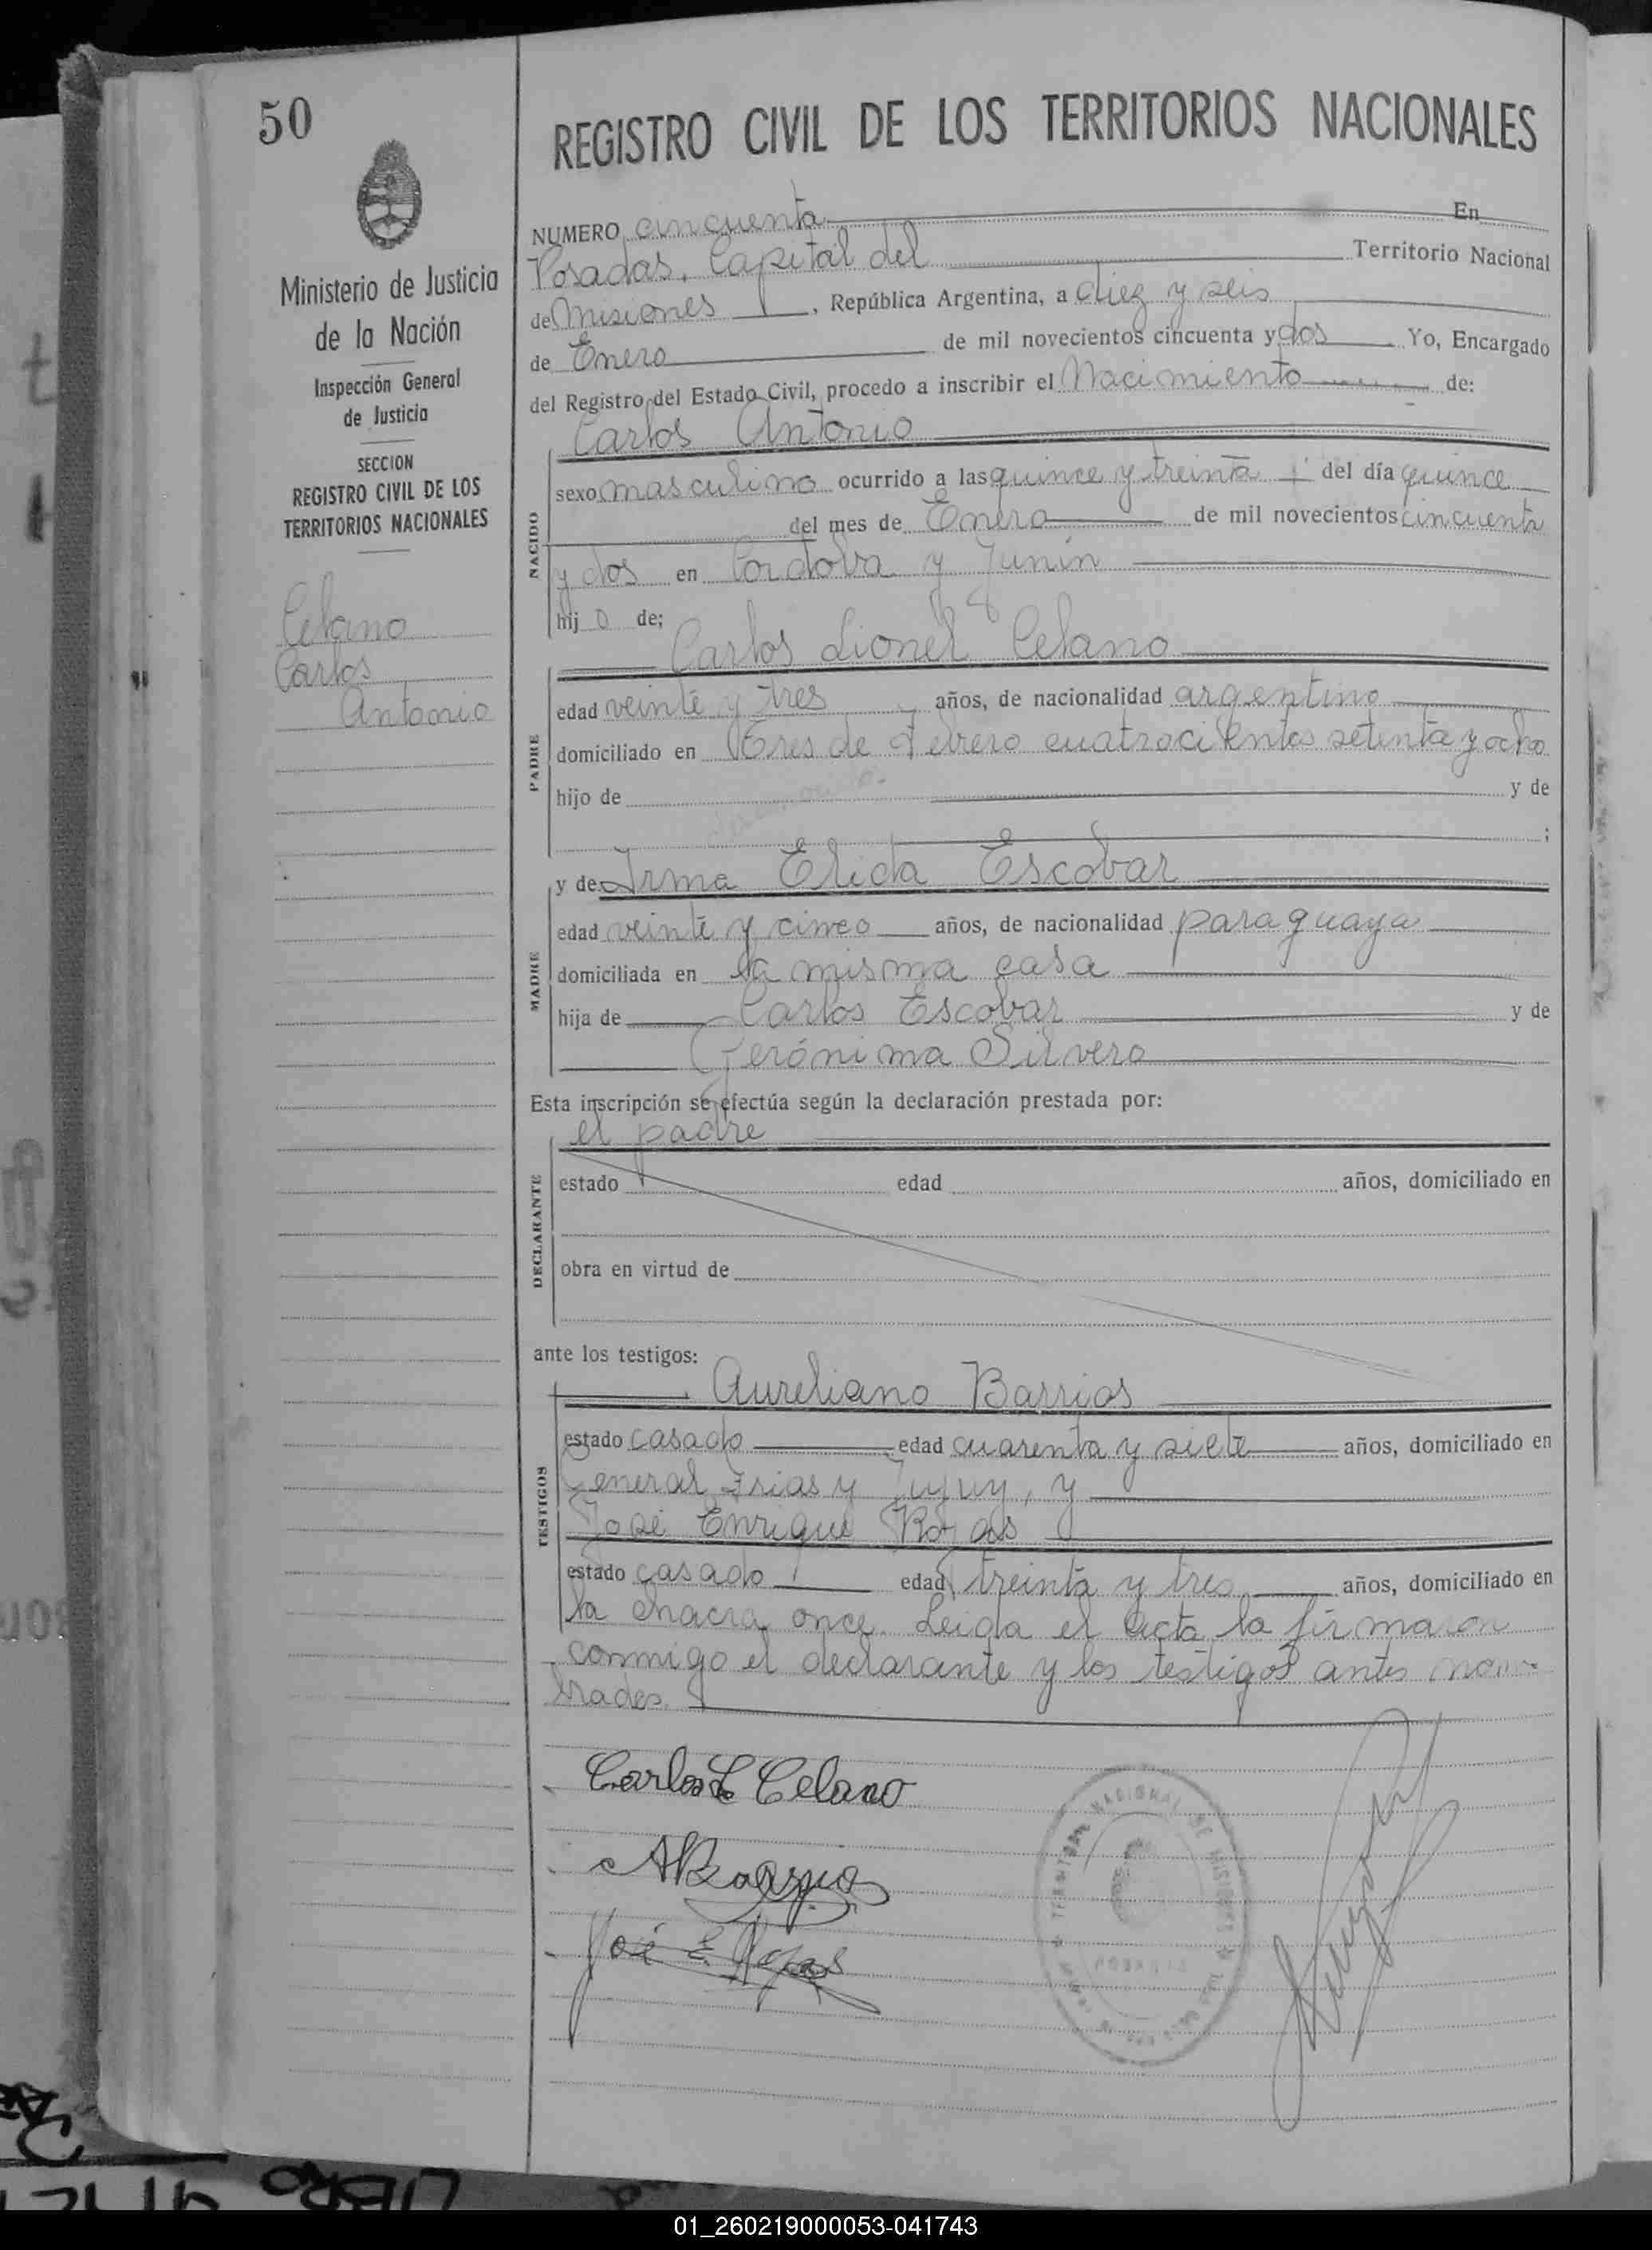 50
REGISTRO CIVIL DE LOS TERRITORIOS NACIONALES
Ministerio de Justicia
de la Nación
Inspección General
de Justicia
SECCION
REGISTRO CIVIL DE LOS
TERRITORIOS NACIONALES
Celano
Carlos
Antonio
NUMERO cincuenta En
Posadas, Capital del Territorio Nacional
de Misiones, República Argentina, a diez y seis
de Enero de mil novecientos cincuenta y dos Yo, Encargado
del Registro del Estado Civil, procedo a inscribir el Nacimiento de:
Carlos Antonio
NACIDO
sexo masculino ocurrido a las quince y treinta del día quince
del mes de Enero de mil novecientos cincuenta
y dos en Cordova y Junín
hijo de;
Carlos Lionel Celano
PADRE
edad veinte y tres años, de nacionalidad argentino
domiciliado en Tres de Febrero cuatrocientos setenta y ocho
hijo de y de
;
y de Irma Elida Escobar
MADRE
edad veinte y cinco años, de nacionalidad paraguaya
domiciliada en la misma casa
hija de Carlos Escobar y de
Gerónima Silvero
Esta inscripción se efectúa según la declaración prestada por:
el padre
DECLARANTE
estado edad años, domiciliado en
obra en virtud de
ante los testigos:
Aureliano Barrios
TESTIGOS
estado casado edad cuarenta y siete años, domiciliado en
General Frias y Jujuy, y
José Enrique Rojas
estado casado edad treinta y tres años, domiciliado en
la chacra once. Leida el acta la firmaron
conmigo el declarante y los testigos antes nom-
brados.
Carlos L Celano
ABarrios
José E. Rojas
NACIONAL DE MISIONES
LIBRO
01_260219000053-041743